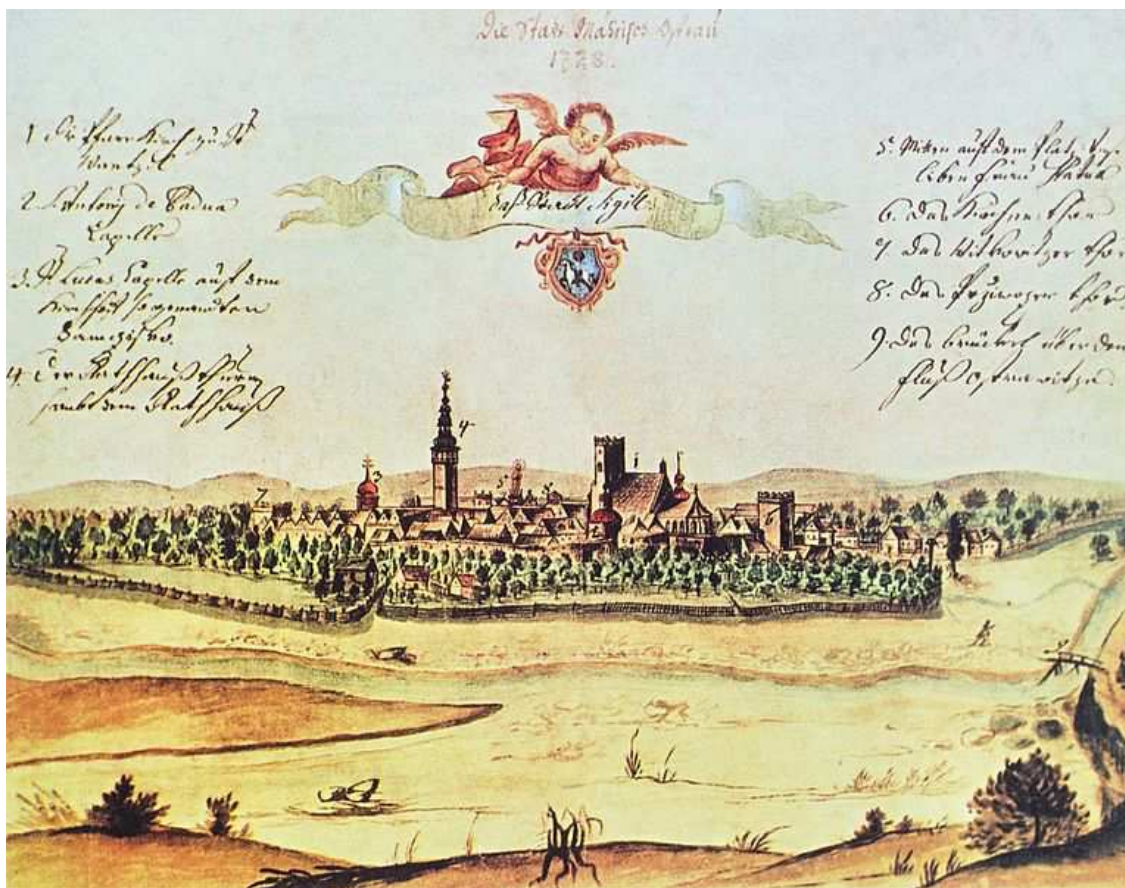 Die Stadt Mährisch Ostrau
1728.
1 die Pfarr Kirch zu St
Wentzel
2. Antony de Padua
Capelle
3. St Lucas Capelle auf dem
Kirchhof so genandten
4. Der Rathhauß Thurm
sambt dem Rathhauß
daß Stadt Sigill.
5. Mitten auf dem Platz
lieben Frauen Statua
6. das thor
7 das Witkowitzer thor
8. das Przivozer thor
9. das brückel über den
fluß Ostrawitza
4
3
7